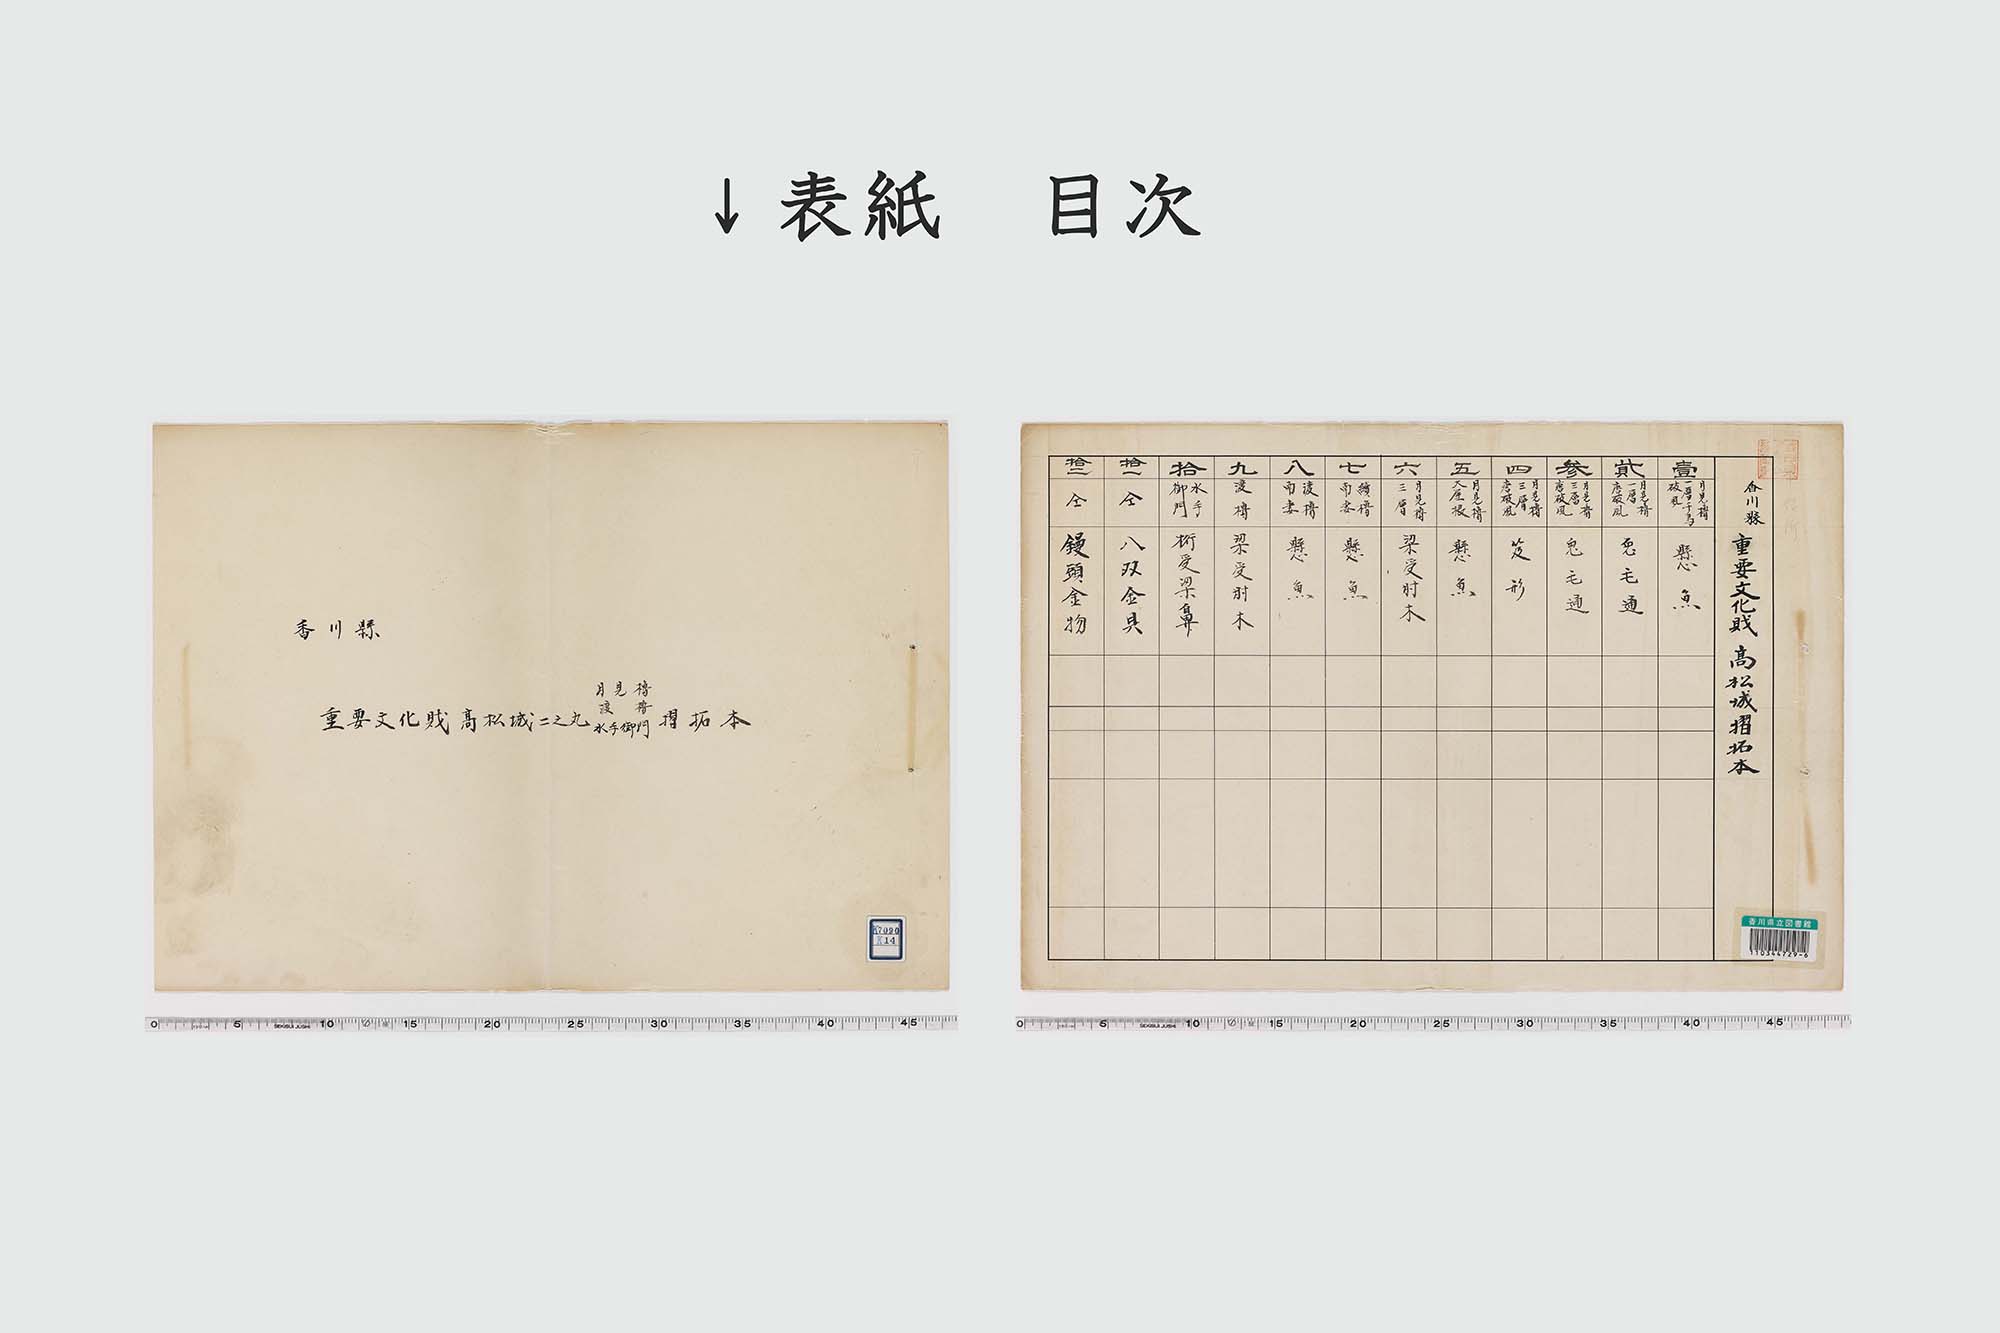 ↓表紙　目次
香川縣
重要文化財高松城二之丸
月見櫓
渡櫓
水手御門
摺拓本
7090
K14
香川縣 重要文化財 高松城摺拓本
壹 月見櫓一層千鳥破風 懸魚
貮 月見櫓一層唐破風 兎毛通
參 月見櫓三層唐破風 兎毛通
四 月見櫓三層唐破風 笈形
五 月見櫓大屋根 懸魚
六 月見櫓三層 梁受肘木
七 續櫓南妻 懸魚
八 渡櫓南妻 懸魚
九 渡櫓 梁受肘木
拾 水手御門 桁受梁鼻
拾一 仝 八双金具
拾二 仝 饅頭金物
香川県立図書館
110344729-6
0 5 10 15 20 25 30 35 40 45
SEKISUI JUSHI
0 5 10 15 20 25 30 35 40 45
SEKISUI JUSHI